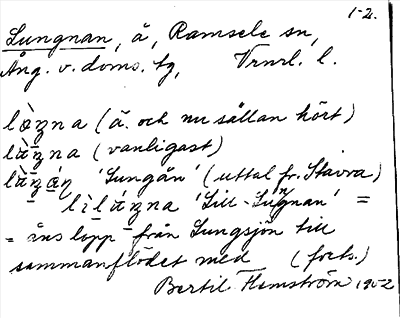 1-2.
Lungnan, å, Ramsele sn,
Ång. v. doms. tg, Vrnrl. l.
lòzna (ä. och nu sällan hört)
làzna (vanligast)
'Lungån' (uttal fr. Stavra)
'Lill-Lungnan' =
= åns lopp från Lungsjön till
sammanflödet med (forts.)
Bertil Flemström 1952